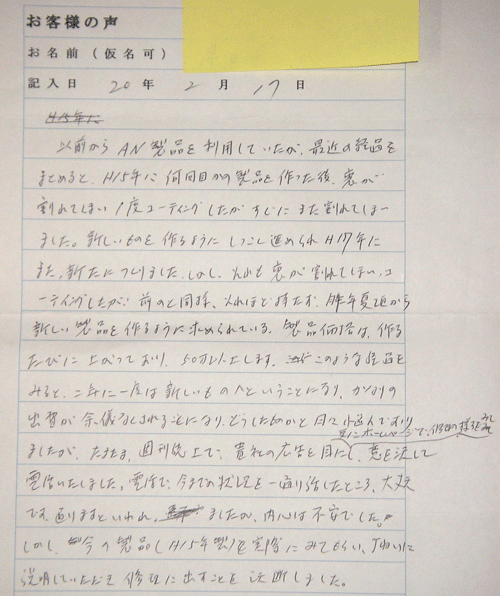 お客様の声
お名前(仮名可)
記入日 20年 2月 17日
H15年に
以前からAN製品を利用していたが、最近の経過を
まとめると、H15年に何回目かの製品を作った後、裏が
割れてしまい1度コーティングしたがすぐにまた割れてしまい
ました。新しいものを作るようにしつこく進められH17年に
また、新たにつくりました。しかし、それも裏が割れてしまい、コ
ーティングしたが、前のと同様、それほど持たず、昨年夏頃から
新しい製品を作るように求められている。製品価格は、作る
たびに上がっており、50万以上します。このような経過を
みると、二年に一度は新しいものへということになり、かなりの
出費が余儀なくされることになり、どうしたものかと日々悩んでおり
更にホームページで、修理の様子を
ましたが、たまたま、週刊誌上で、貴社の広告を目にし、意を決して
電話いたしました。電話で、今までの状況を一通り話したところ、大丈夫
です。直りますといわれ、ましたが、内心は不安でした。
しかし、今の製品(H15年製)を実際にみてもらい、丁ねいに
説明していただき修理に出すことを決断しました。